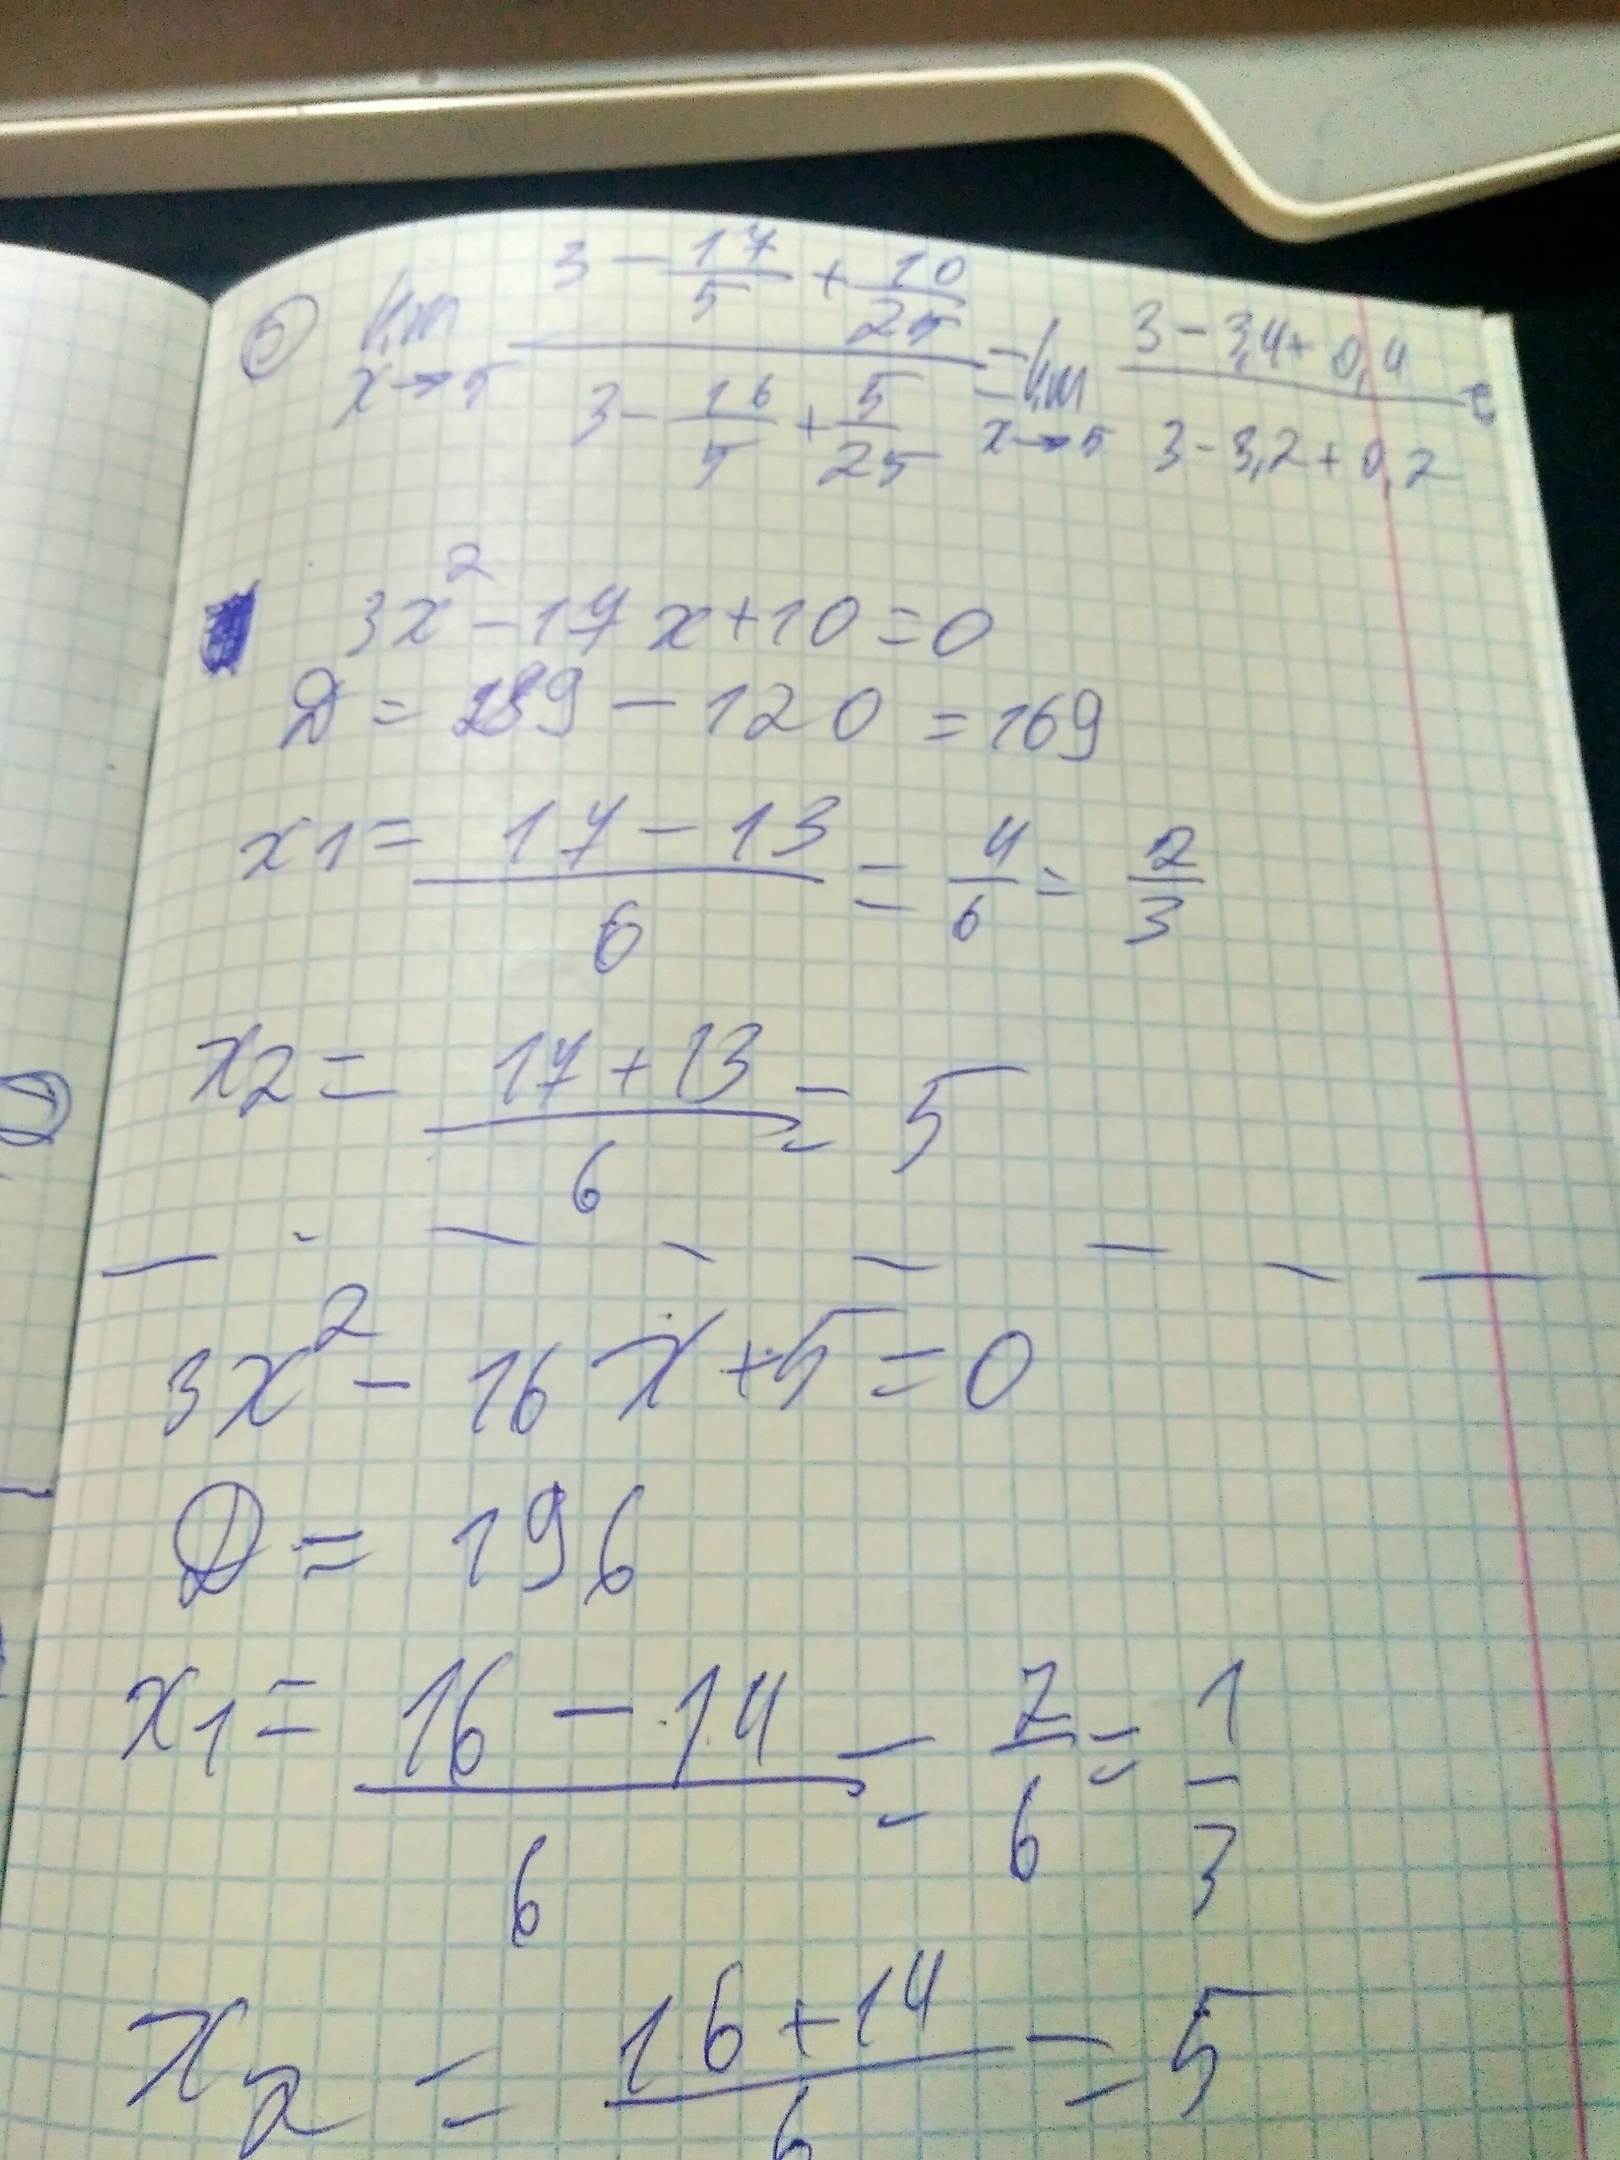 б) lim x→5 (3 - 17/5 + 10/25)/(3 - 16/5 + 5/25) = lim x→5 (3 - 3,4 + 0,4)/(3 - 3,2 + 0,2) =
3x² - 17x + 10 = 0
D = 289 - 120 = 169
x1 = (17 - 13)/6 = 4/6 = 2/3
x2 = (17 + 13)/6 = 5
3x² - 16x + 5 = 0
D = 196
x1 = (16 - 14)/6 = 2/6 = 1/3
x2 = (16 + 14)/6 = 5